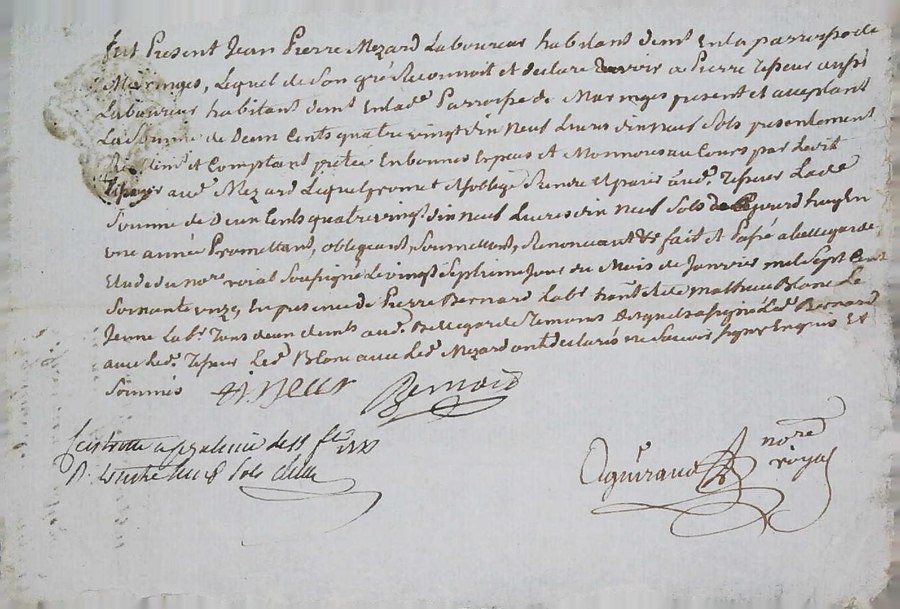 Fut Present Jean Pierre Mezard Laboureur habitant demt En la parroisse de
Maringes, Lequel de Son gré Reconnoit et declare devoir a Pierre tisseur aussi
Laboureur habitant demt En lade Parroisse de Maringes present et aceptant
La Somme de Deux Cents quatre vingt dix Neuf Livres dix neuf Sols presentement
et Comptant pretée En bonnes Especes et Monnoies au Cours par Ledit
tisseur aud. Mezard Lequel promet et soblige Rendre Et paier aud. tisseur Lade
Somme de Deux Cents quatre vingt dix neuf Livres dix neuf Sols dhuy En
une année Promettant, obligeant, Soumettant, Renonceant &c fait et Passé a bellegarde
Etude du nore roial Soussigné Le vingt Septieme Jour du Mois de Janvier mil Sept Cent
Soixante onze, En presence de Pierre Bernard Labr mathieu Blanc Le
Jeune Labr tous deux demts aud. Bellegarde temoins signé Led. Bernard
avec led. tisseur Led. Blanc avec Led. Mezard ont declarés ne Savoir Signer Enquis Et
Sommés tisseur Bernard
le 11 fer 1771
huit Sols
Aguiraud nore
royal